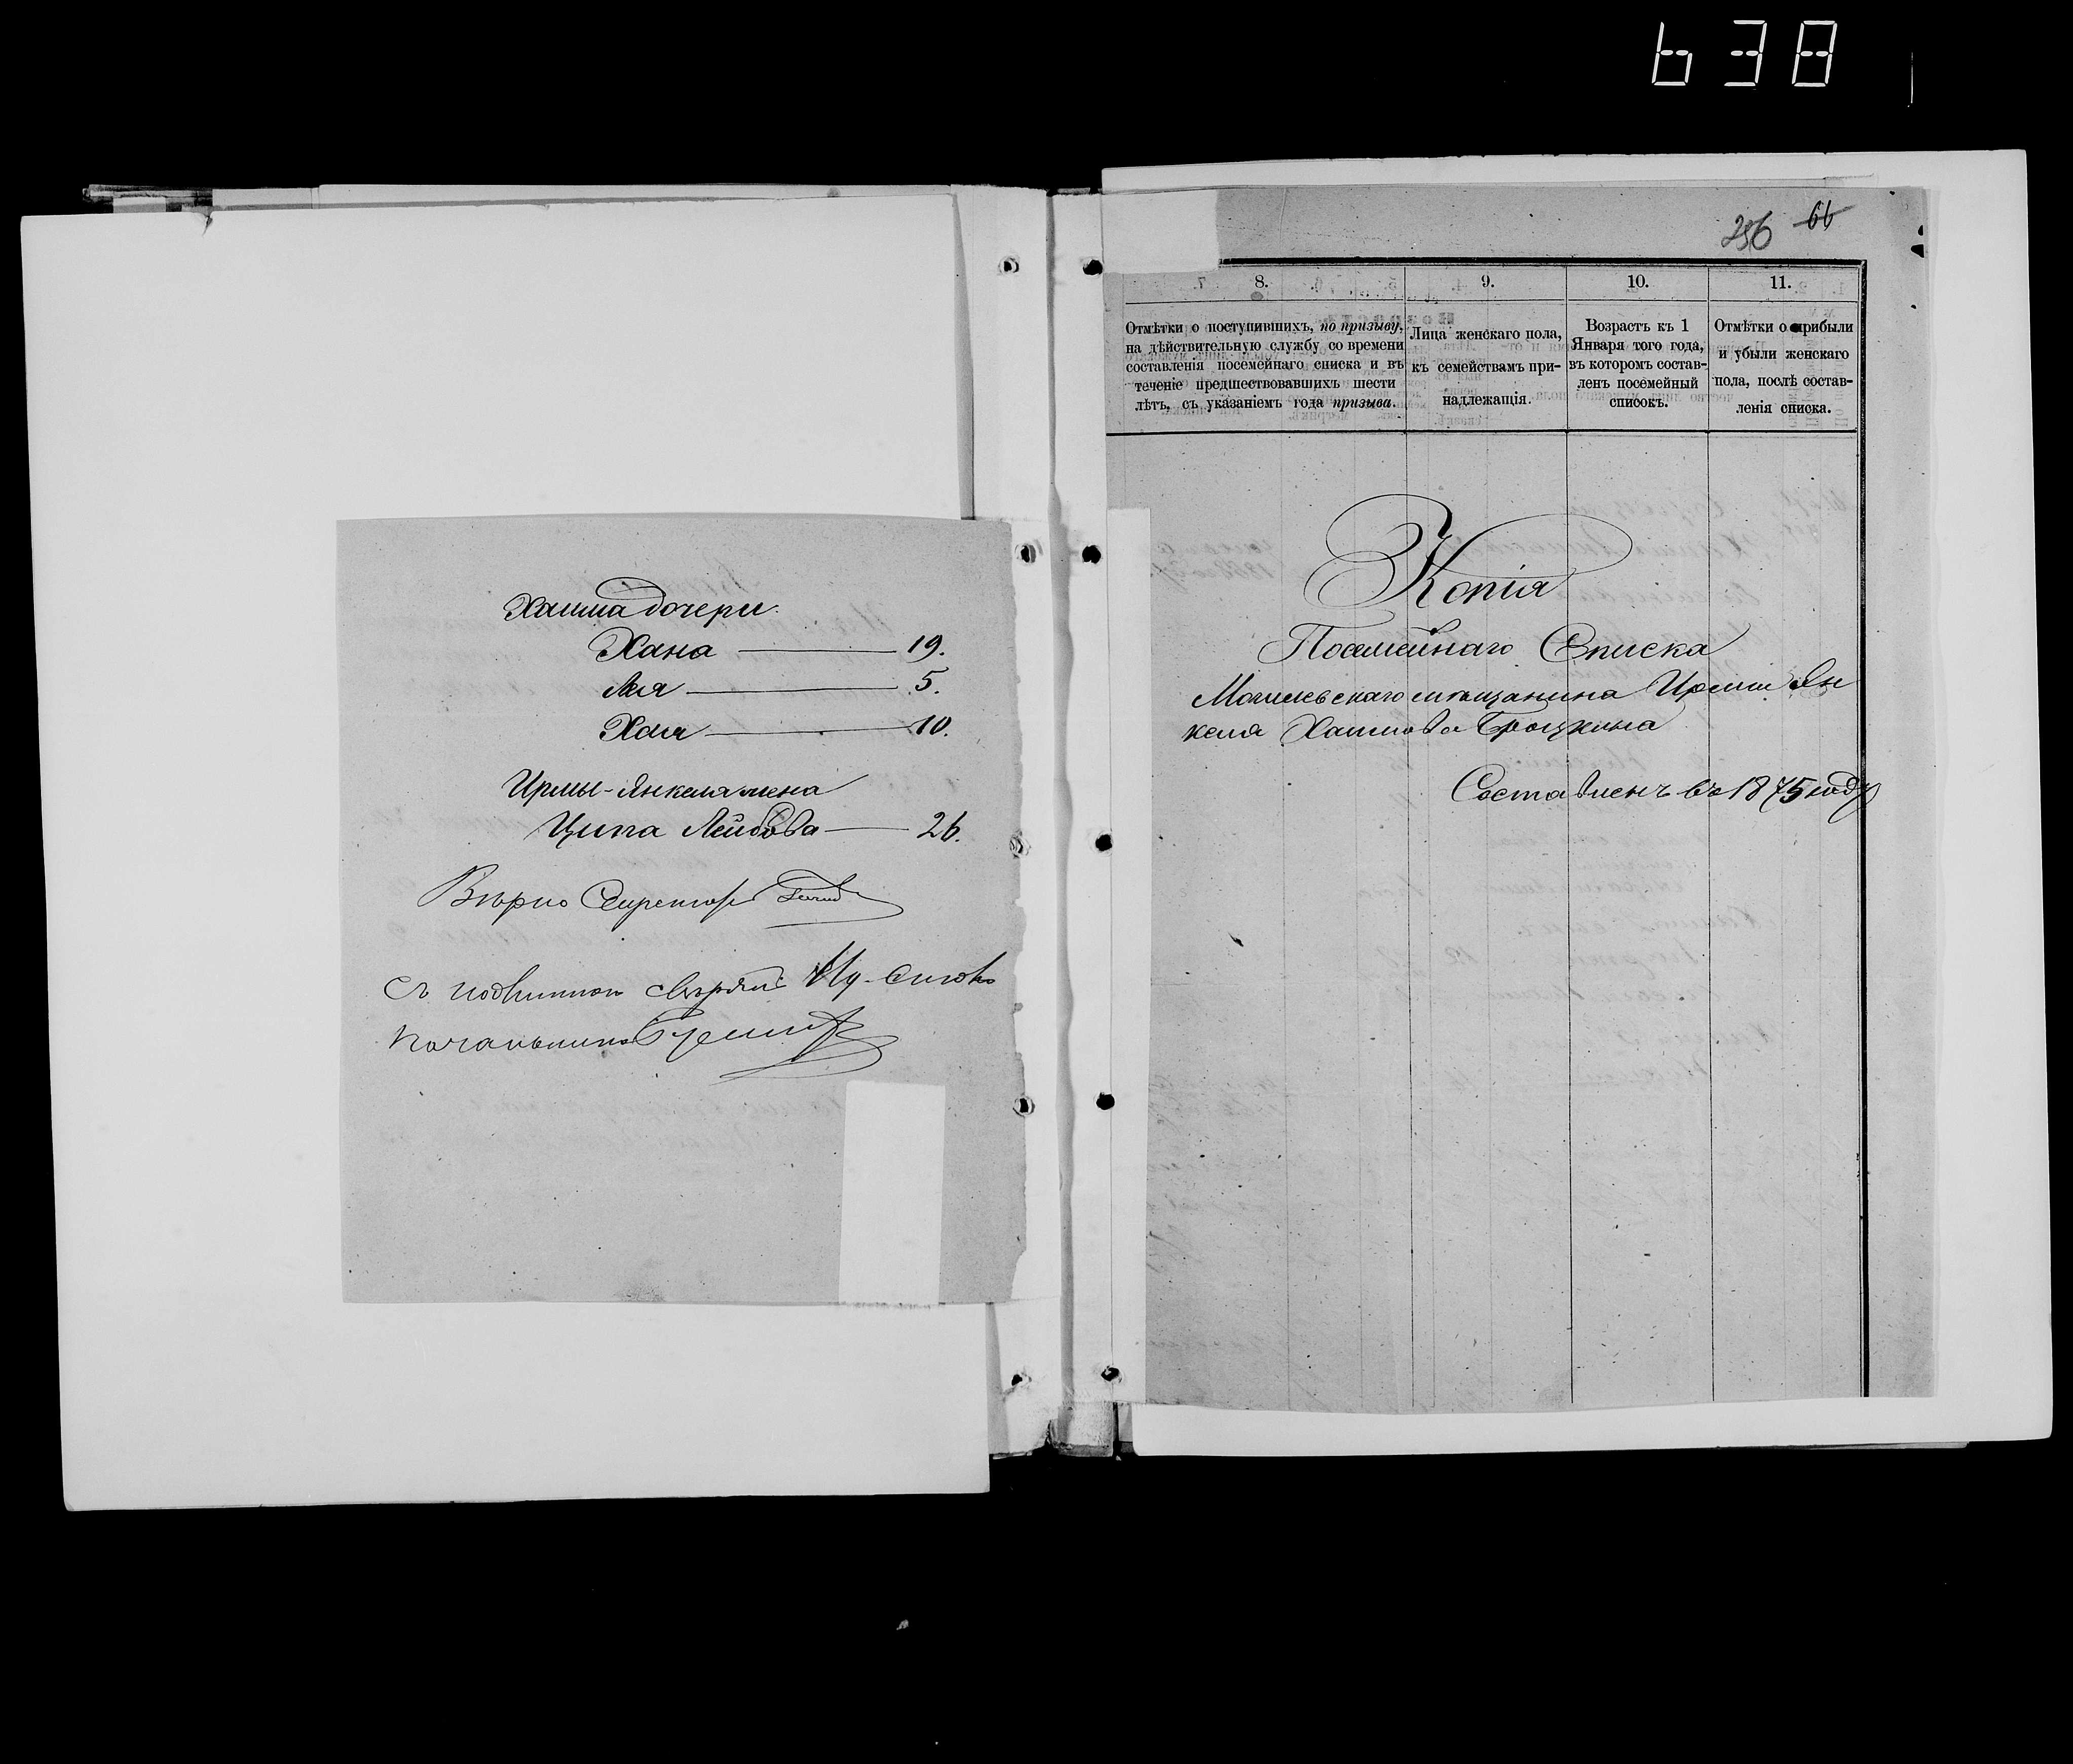 638
Хаима дочери
Хана — 19.
Лея — 5.
Хая — 10.
Ирмы-Янкеля жена
Ципа Лейбова — 26.
Вѣрно Секретарь
Съ подлиннымъ свѣрялъ
256 66
8. 9. 10. 11.
Отмѣтки о поступившихъ, по призыву,
на дѣйствительную службу со времени
составленія посемейнаго списка и въ
теченіе предшествовавшихъ шести
лѣтъ, съ указаніемъ года призыва.
Лица женскаго пола,
къ семействамъ при-
надлежащія.
Возрастъ къ 1
Января того года,
въ которомъ состав-
ленъ посемейный
списокъ.
Отмѣтки о прибыли
и убыли женскаго
пола, послѣ состав-
ленія списка.
Копія
Посемейнаго Списка
Могилевскаго мѣщанина Ирмы Ян
келя Хаимова Броцкина
Составленъ въ 1875 году